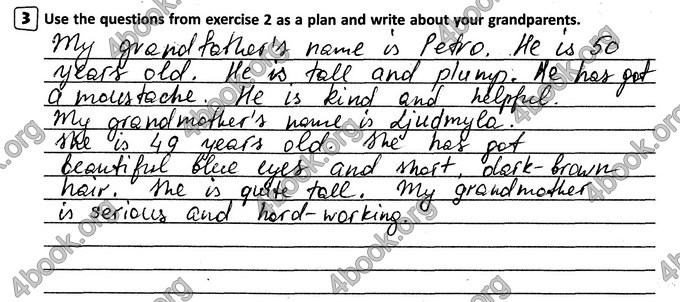 3 Use the questions from exercise 2 as a plan and write about your grandparents.
My grandfather's name is Petro. He is 50
years old. He is tall and plump. He has got
a moustache. He is kind and helpful.
My grandmother's name is Ljudmyla.
She is 49 years old. She has got
beautiful blue eyes and short, dark-brown
hair. She is quite tall. My grandmother
is serious and hard-working.
4book.org